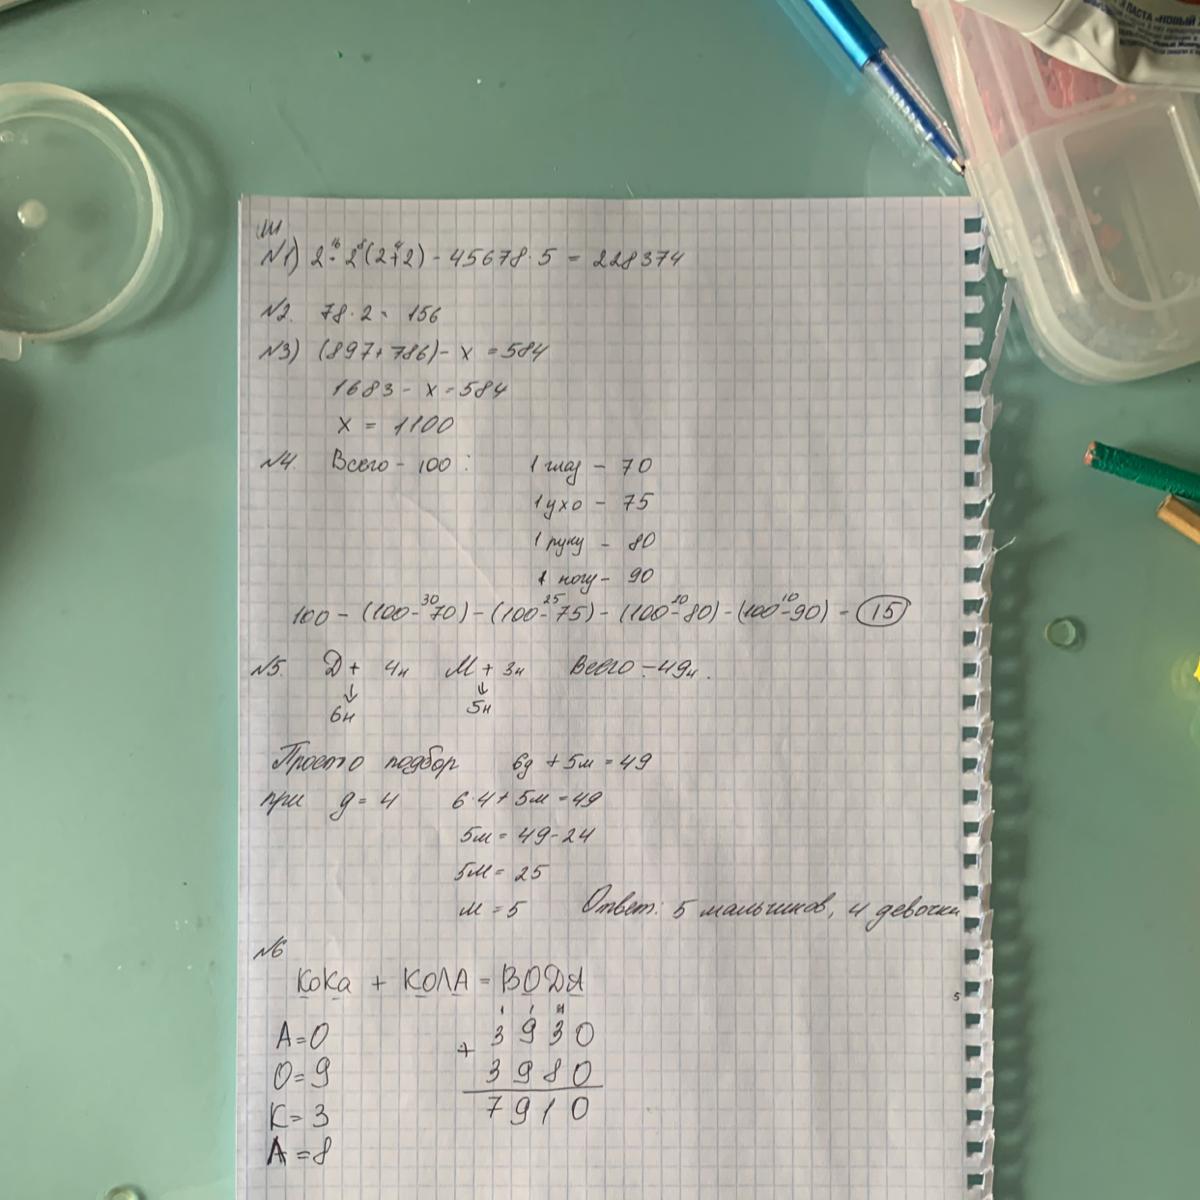 ПАСТА «НОВЫЙ
№1) 2 - 2 (2+2) - 45678·5 = 228374
16 8 4
№2. 78·2 = 156
№3) (897+786) - x = 584
1683 - x = 584
x = 1100
№4. Всего - 100 : 1 глаз - 70
1 ухо - 75
1 руку - 80
1 ногу - 90
30 25 20 10
100 - (100-70) - (100-75) - (100-80) - (100-90) = 15
№5. Д + 4н М + 3н Всего - 49н.
↓ ↓
6н 5н
Просто подбор 6д + 5м = 49
при д = 4 6·4 + 5м = 49
5м = 49-24
5м = 25
м = 5 Ответ: 5 мальчиков, 4 девочки
№6
КОКА + КОЛА = ВОДА
А=0 3930
О=9 + 3980
К=3 7910
Л=8